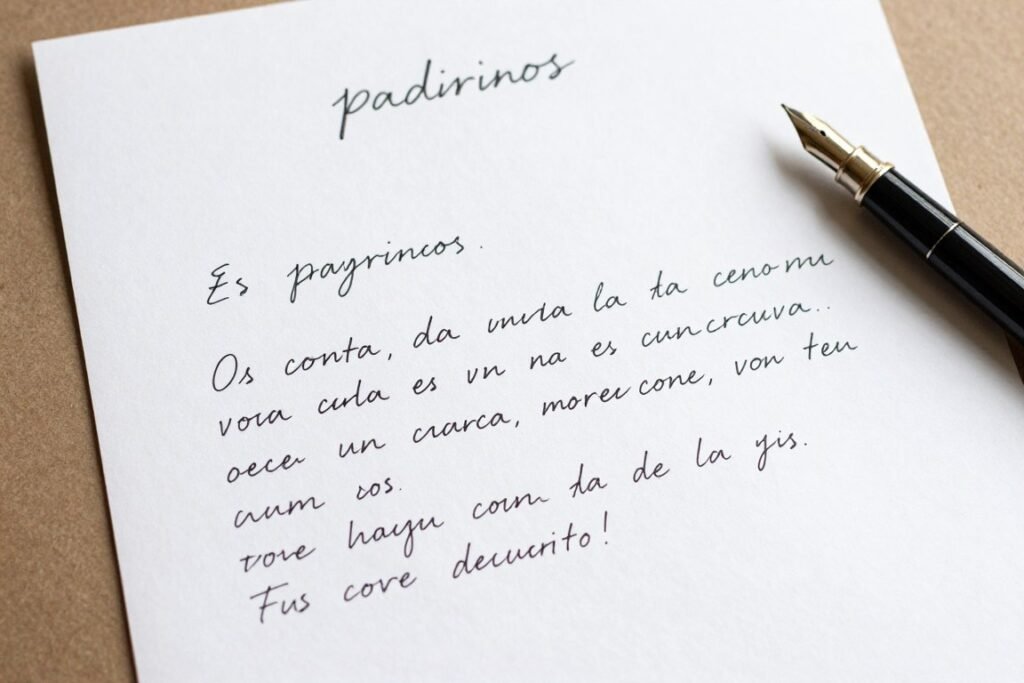 padirinos
Es payrincos.
Os conta, da la ta cenomu
vora curla es un na es cuncrcuva..
un cuarca, moreu cone, von teu
cuum cos.
hayu coum ta de la yis.
Fus cove decucrito!